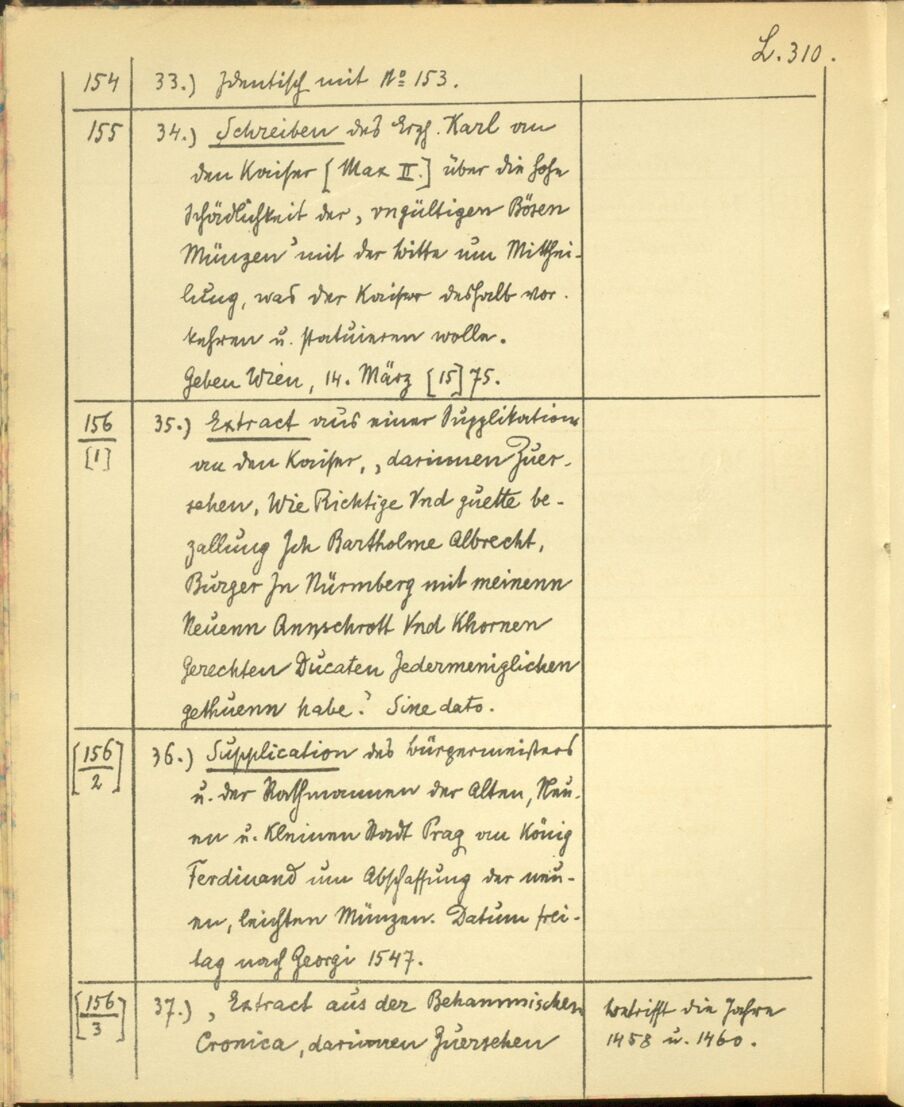 L. 310.
154 33.) Identisch mit No 153.
155 34.) Schreiben des Erzh. Karl an
den Kaiser [Max II.] über die hohe
Schädlichkeit der „vngültigen Bösen
Münzen“ mit der Bitte um Mitthei-
lung, was der Kaiser deshalb vor-
kehren u. statuieren wolle.
Geben Wien, 14. März [15]75.
156 35.) Extract aus einer Supplikation
[1] an den Kaiser, „darinnen Zuer-
sehen, Wie Richtige Vnd guette be-
zallung Ich Bartholme Albrecht,
Burger In Nürmberg mit meinenn
Neuenn Annschrott Vnd Khornen
Gerechten Ducaten Jedermeniglichen
gethuenn habe.“ Sine dato.
[156 36.) Supplication des Bürgermeisters
2] u. der Rathmannen der Alten, Neu-
en u. Kleinen Stadt Prag an König
Ferdinand um Abschaffung der neu-
en, leichten Münzen. Datum frei-
tag nach Georgi 1547.
[156 37.) „Extract aus der Behammischen betrifft die Jahre
3] Cronica, darinnen Zuersehen 1458 u. 1460.